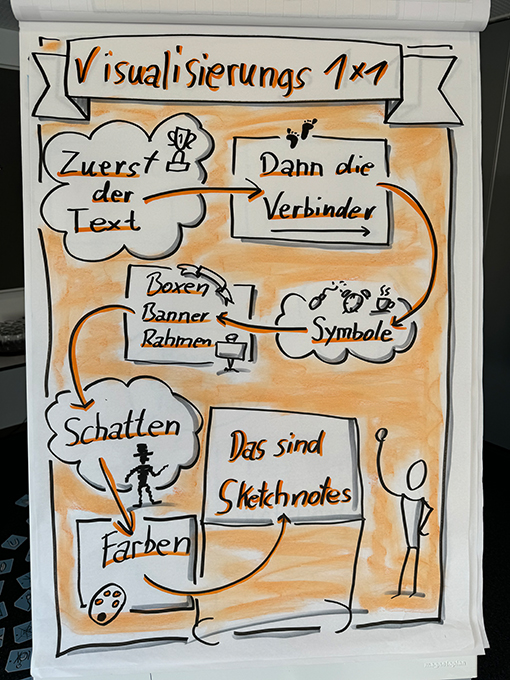 Visualisierungs 1x1
Zuerst
der
Text
Dann die
Verbinder
Symbole
Boxen
Banner
Rahmen
Schatten
Farben
Das sind
Sketchnotes